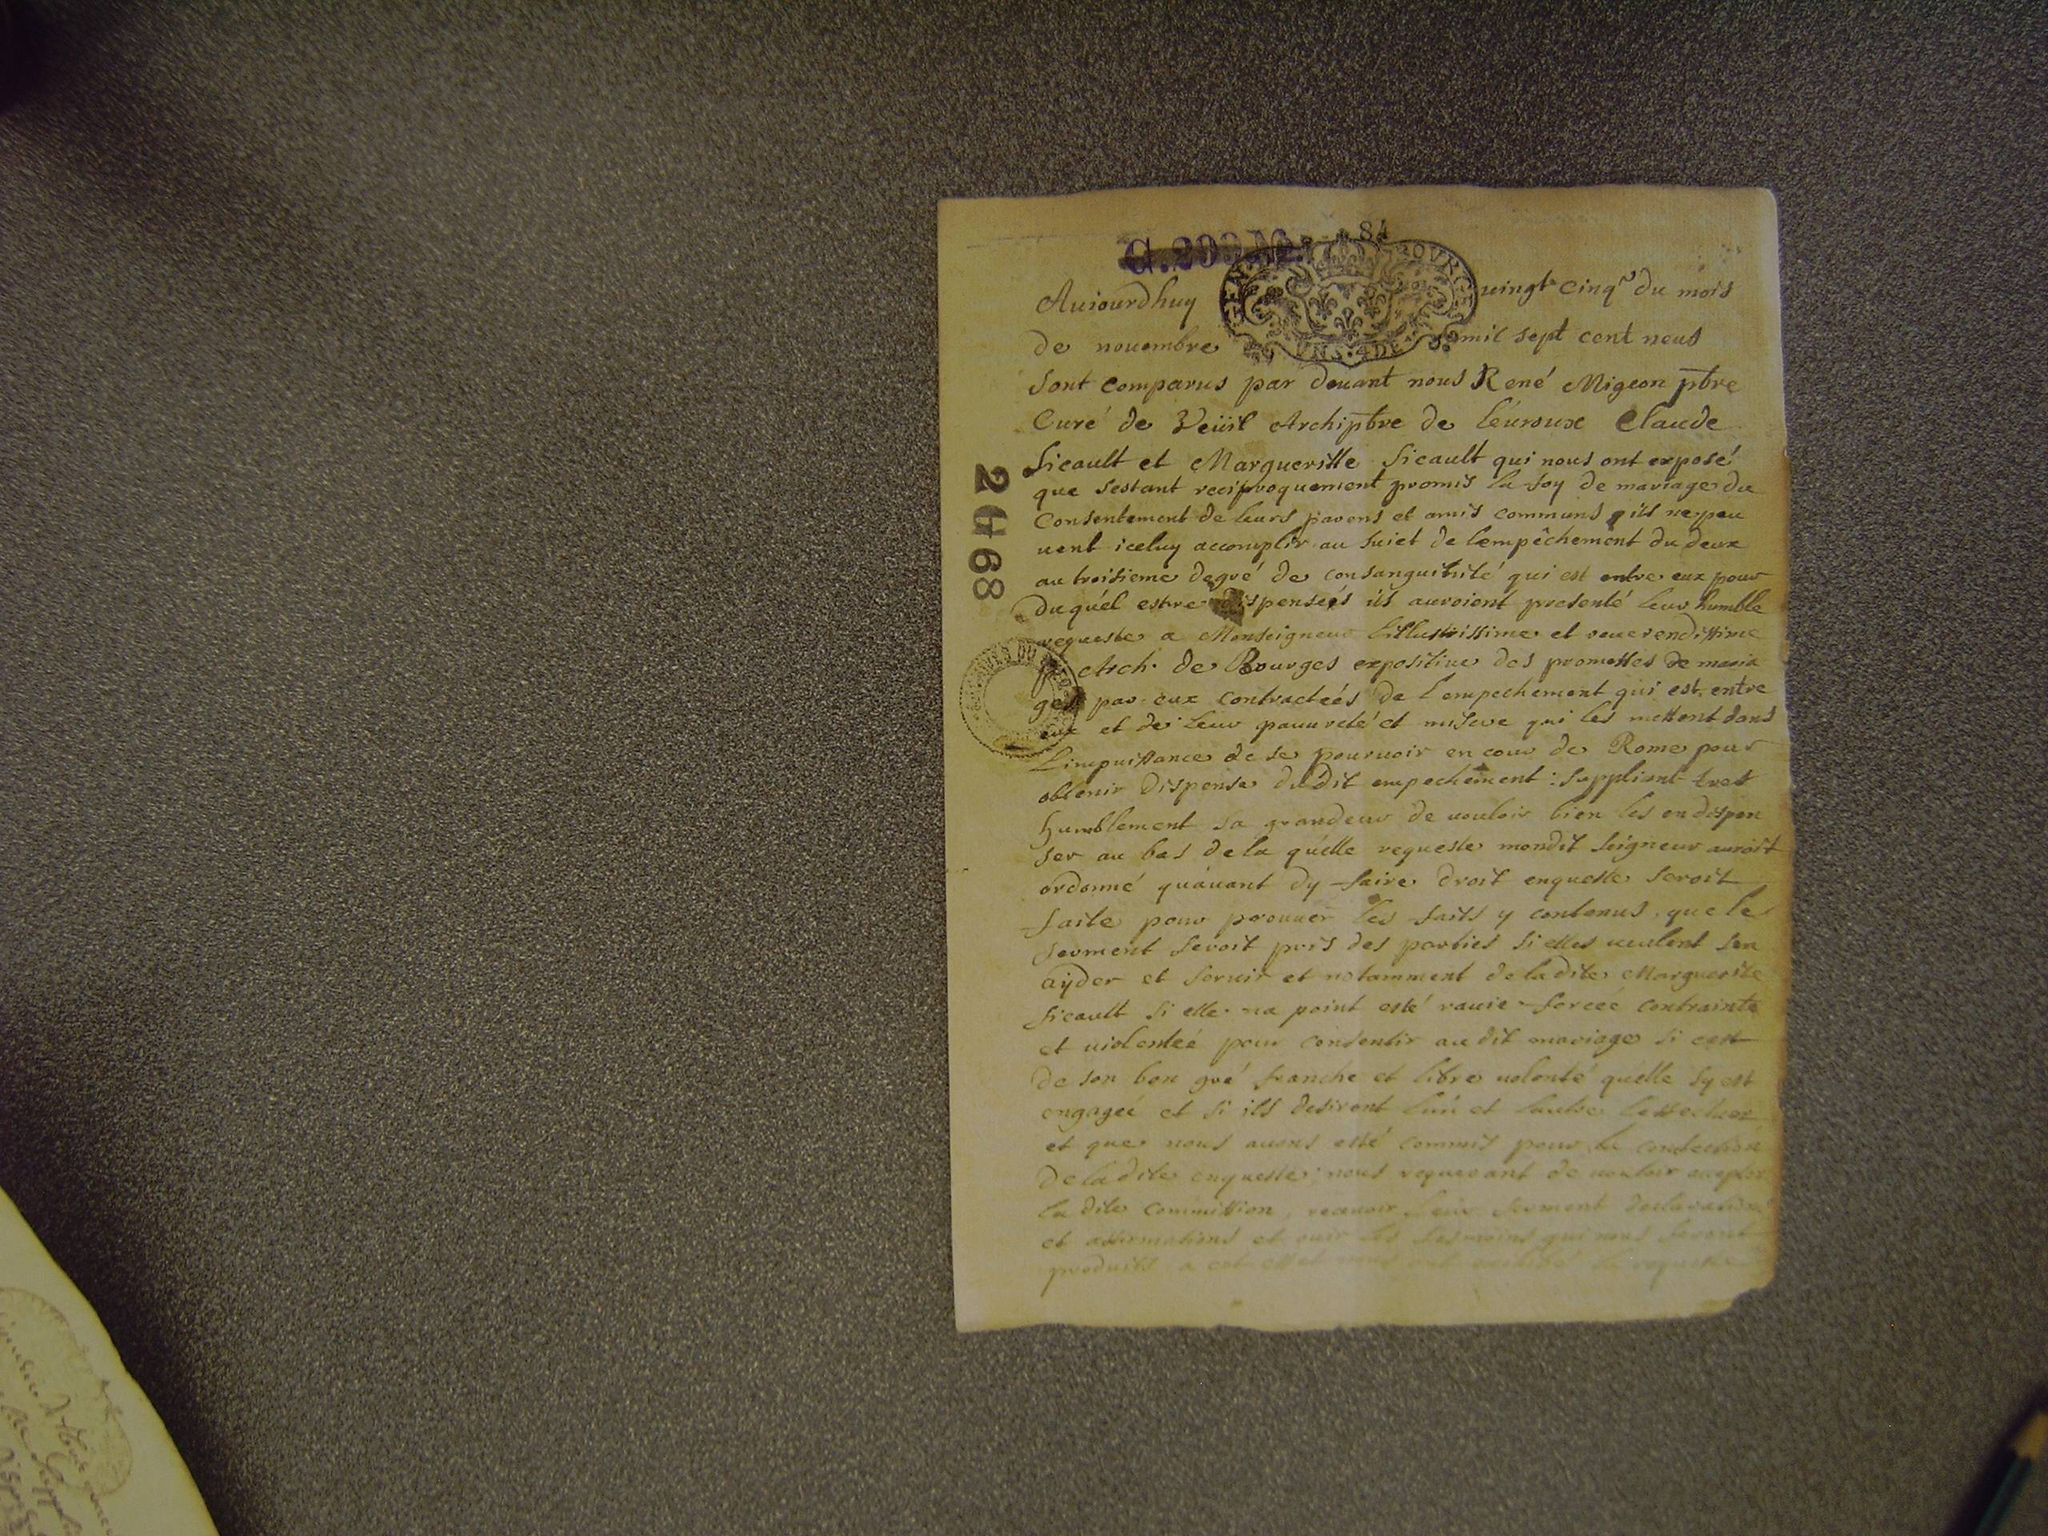 84
G.
Aujourdhuy uingt Cinq du mois
de nouembre mil sept cent neuf
sont comparus par deuant nous René Migeon ptre
Curé de Veüil Archiptre de Leuroux Claude
Sicault et Margueritte Sicault qui nous ont exposé
que sestant reciproquement promis la foy de mariage du
Consentement de leurs parens et amis communs ils ne peu
uent iceluy accomplir au suiet de lempêchement du deux
au troisieme degré de consanguinité qui est entre eux pour
du quél estre dispenseés ils auroient presenté leur humble
requeste a Monseigneur Lillustrissime et reuerendissime
Arch. de Bourges expositiue des promesses de maria
ges par eux contracteés de lempechement qui est entre
eux et de leur pauureté et misere qui les mettent dans
Limpuissance de se pouruoir en cour de Rome pour
obtenir dispense du dit empechement : suppliant tres
humblement sa grandeur de uouloir bien les en dispen
ser au bas de la quélle requeste mondit seigneur auroit
ordonné quáuant dy faire droit enqueste seroit
faite pour prouuer les faits y contenus, que le
serment seroit pris des parties si elles ueulent sen
aÿder et seruir et notamment de ladite Marguerite
Sicault si elle na point esté rauie forceé contrainte
et uiolenteé pour consentir au dit mariage si cest
de son bon gré franche et libre uolonté quélle sy est
engageé et si ils desirent lun et lautre leffectuer
et que nous auons esté commis pour la confection
de ladite enqueste, nous requerant de uouloir accepter
la dite Commission, receuoir leur serment declarations
et affirmations et ouir les tesmoins qui nous seront
produits a cet effet nous ont exhibé la requeste
2468